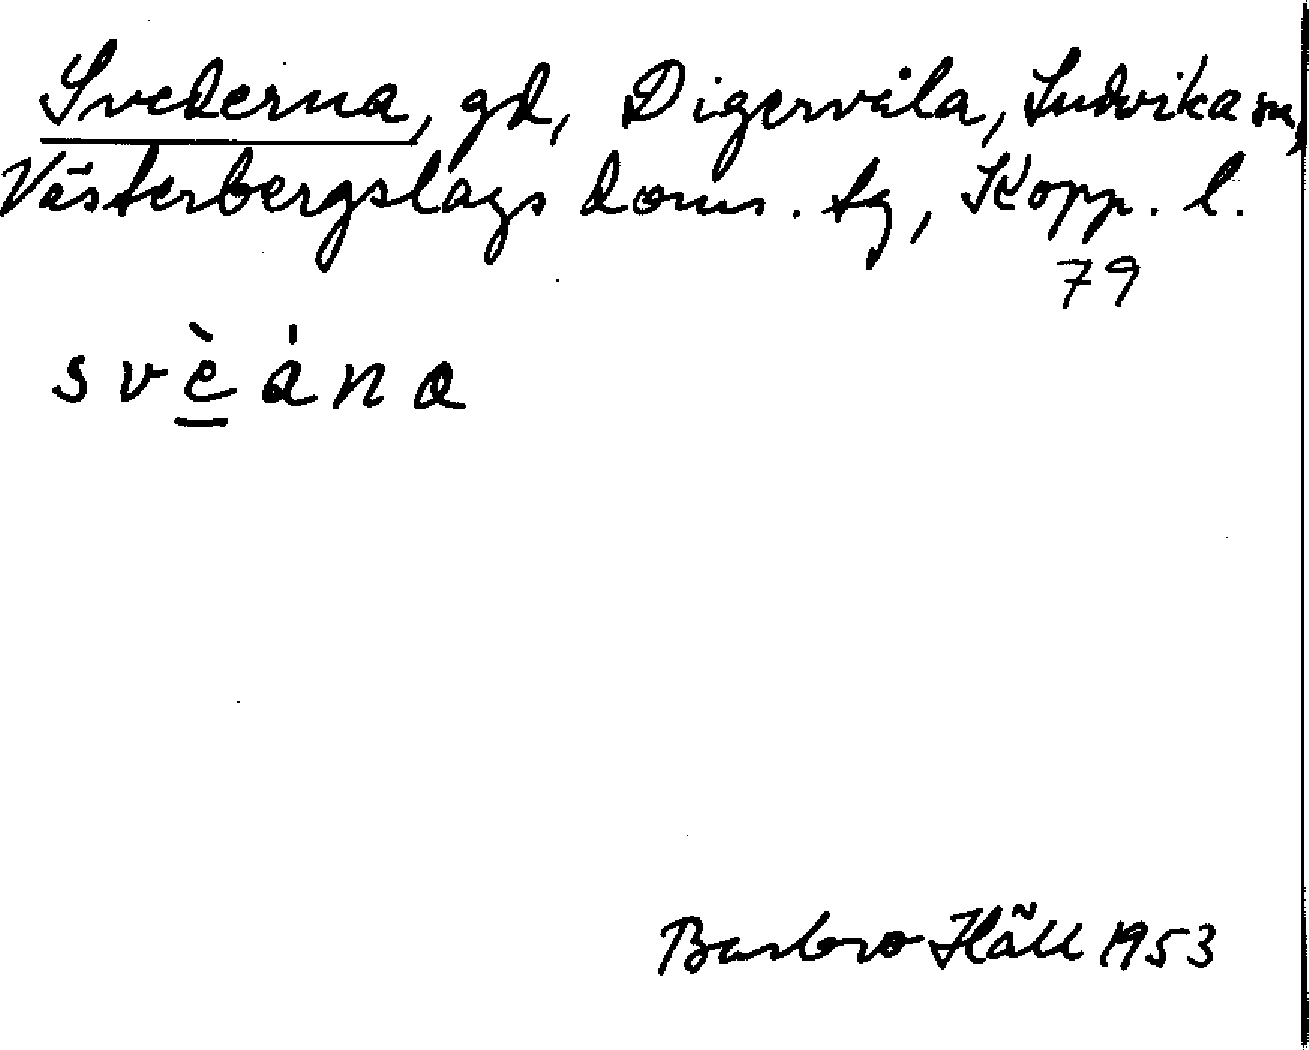 Svederna, gd, Digervåla, Ludvika sn,
Västerbergslags doms. tg, Kopp. l.
79
svè̱ána
Barbro Häll 1953